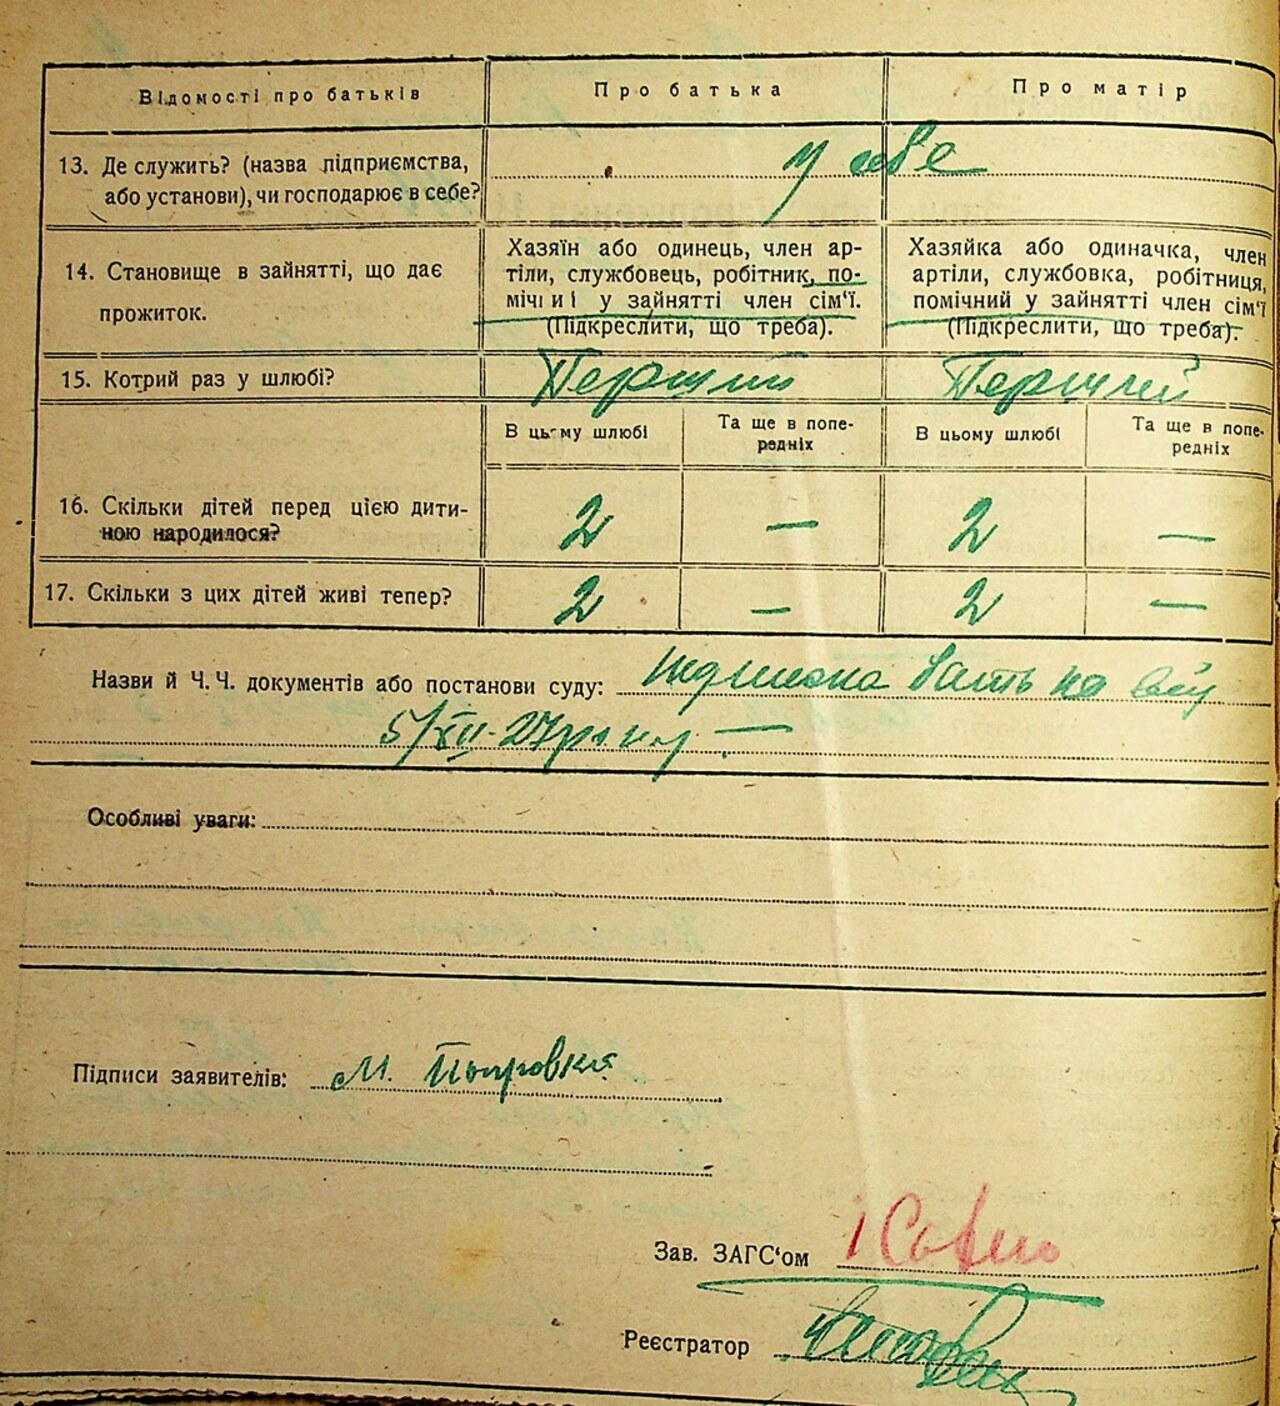 Відомості про батьків
Про батька
Про матір
13. Де служить? (назва підприємства,
або установи), чи господарює в себе?
у себе
14. Становище в зайнятті, що дає
прожиток.
Хазяїн або одинець, член ар-
тіли, службовець, робітник, по-
мічниі у зайнятті член сім'ї.
(Підкреслити, що треба).
Хазяйка або одиначка, член
артіли, службовка, робітниця,
помічний у зайнятті член сім'ї
(Підкреслити, що треба).
15. Котрий раз у шлюбі?
Перший
Перший
В цьому шлюбі
Та ще в попе-
редніх
В цьому шлюбі
Та ще в попе-
редніх
16. Скільки дітей перед цією дити-
ною народилося?
2
—
2
—
17. Скільки з цих дітей живі тепер?
2
—
2
—
Назви й Ч. Ч. документів або постанови суду:
5/XII-27 року —
Особливі уваги:
Підписи заявителів: М.
Зав. ЗАГС'ом
Реєстратор